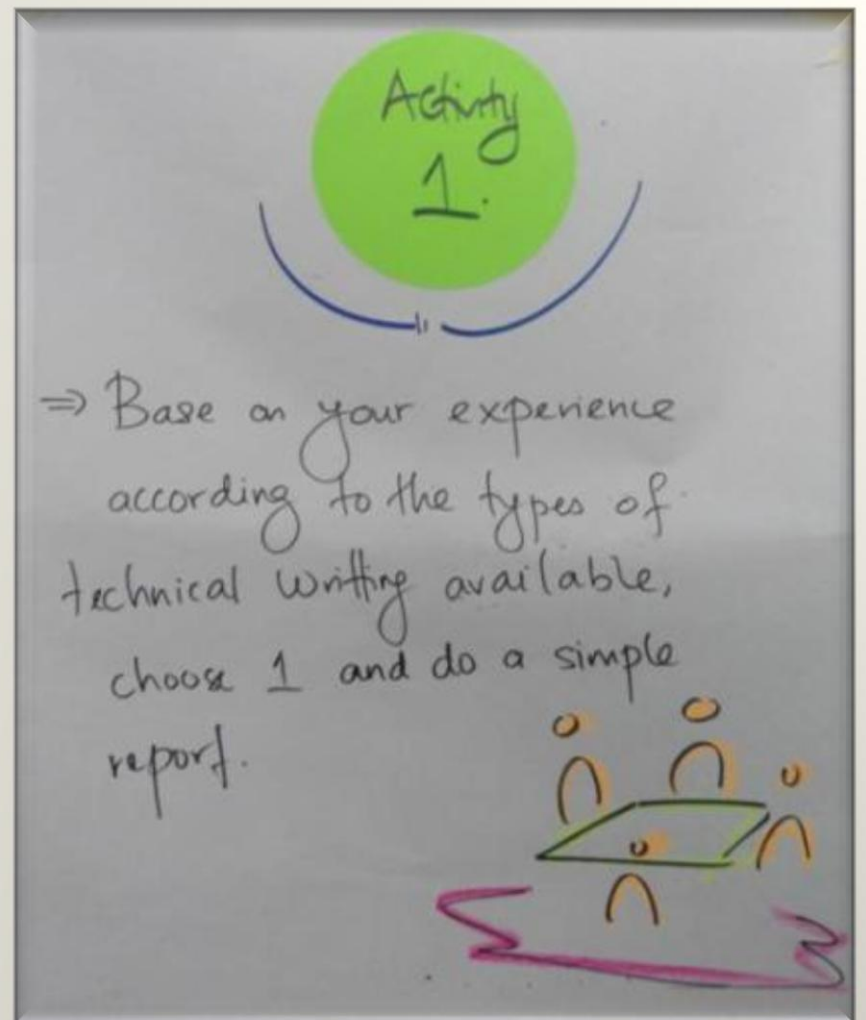 Activity
1.
⇒ Base on your experience
according to the types of
technical writting available,
choose 1 and do a simple
report.